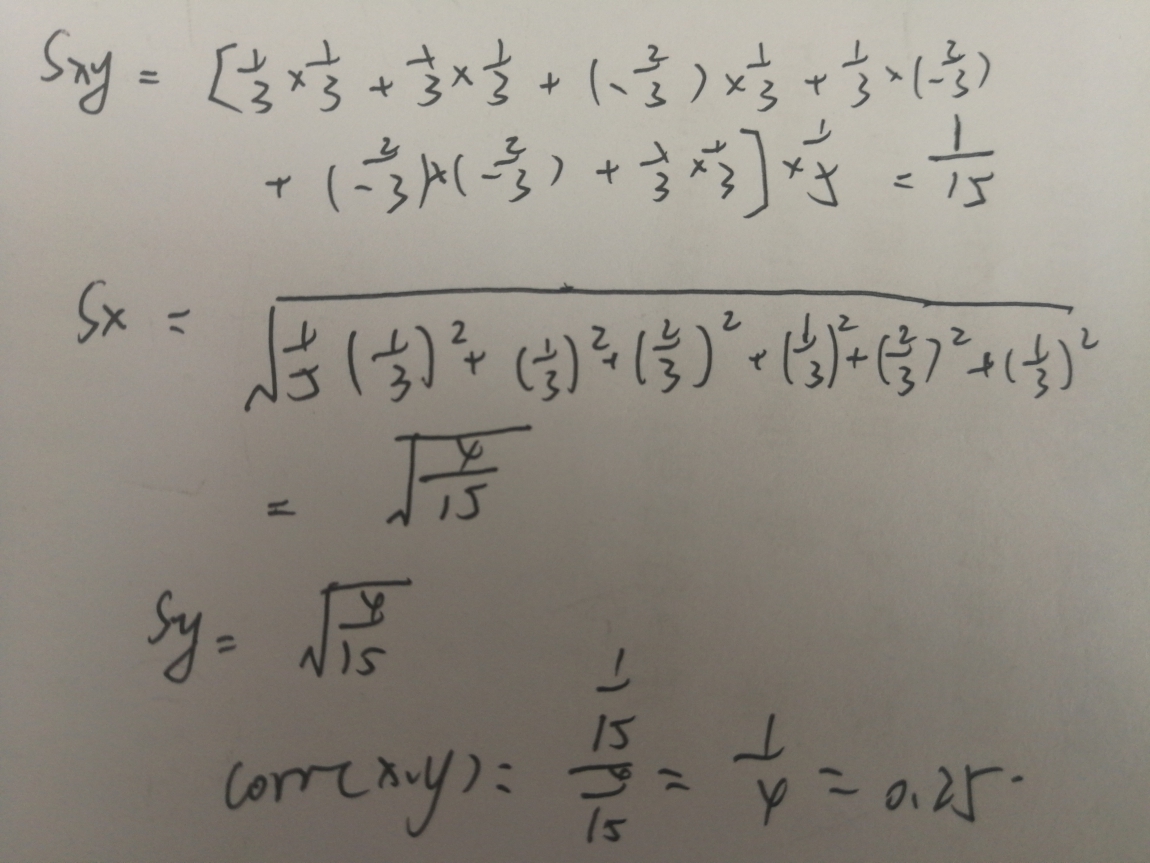 Sxy = [1/3 × 1/3 + 1/3 × 1/3 + (-2/3) × 1/3 + 1/3 × (-2/3)
+ (-2/3) × (-2/3) + 1/3 × 1/3] × 1/5 = 1/15
Sx = √(1/5 (1/3)² + (1/3)² + (2/3)² + (1/3)² + (2/3)² + (1/3)²)
= √(4/15)
Sy = √(4/15)
corr(x,y) = (1/15)/(4/15) = 1/4 = 0.25.